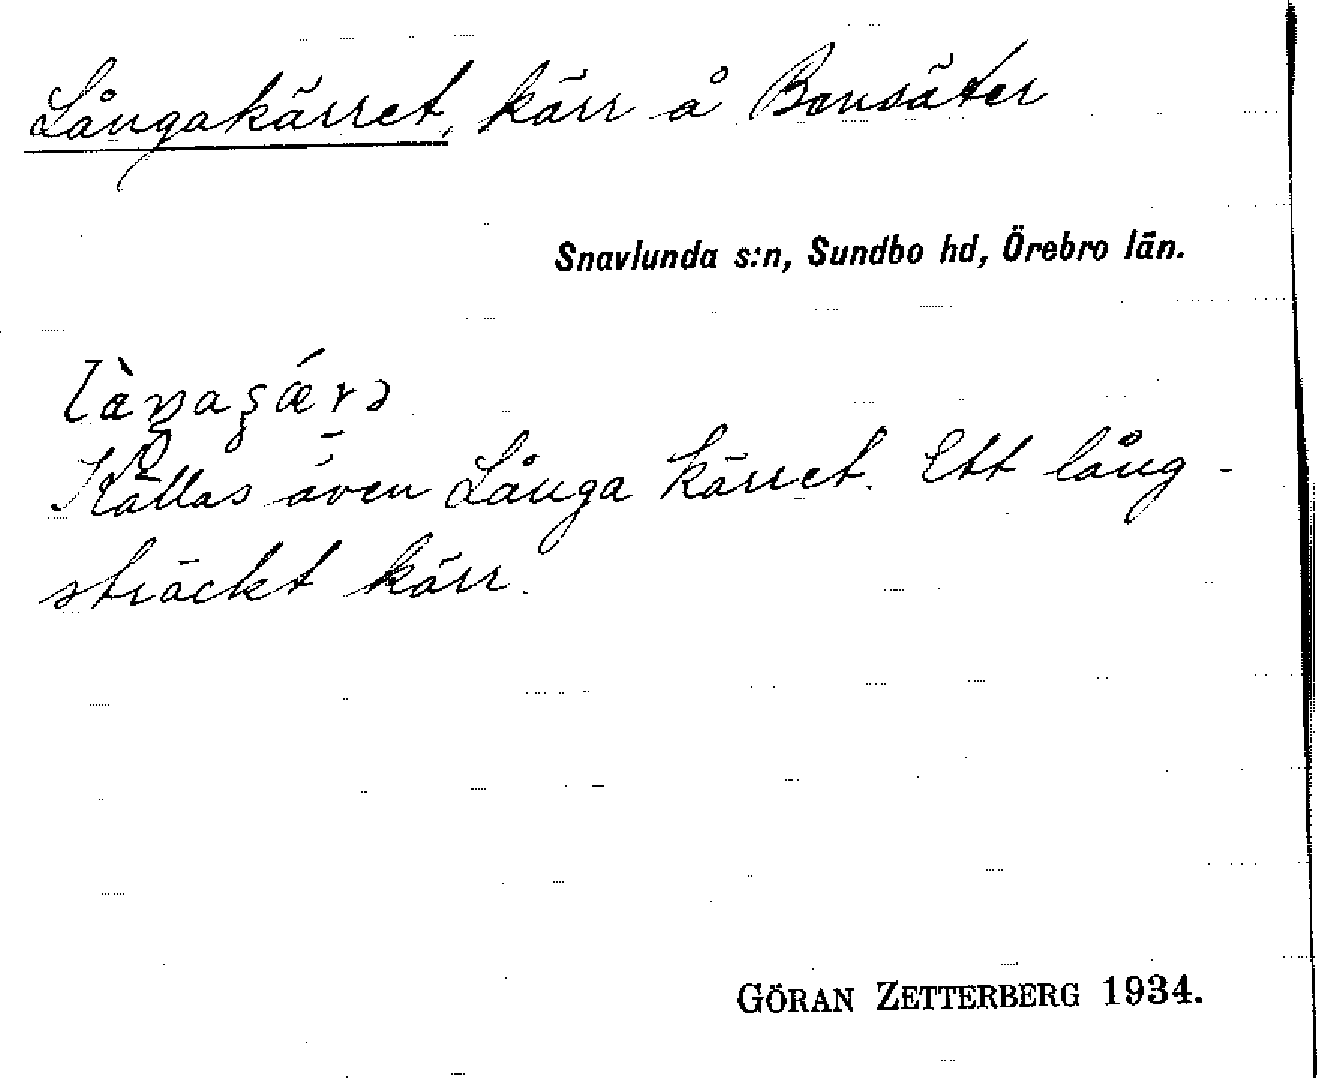 Långakärret, kärr å Bensäter
Snavlunda s:n, Sundbo hd, Örebro län.
Kallas även Långa kärret. Ett lång-
sträckt kärr.
GÖRAN ZETTERBERG 1934.